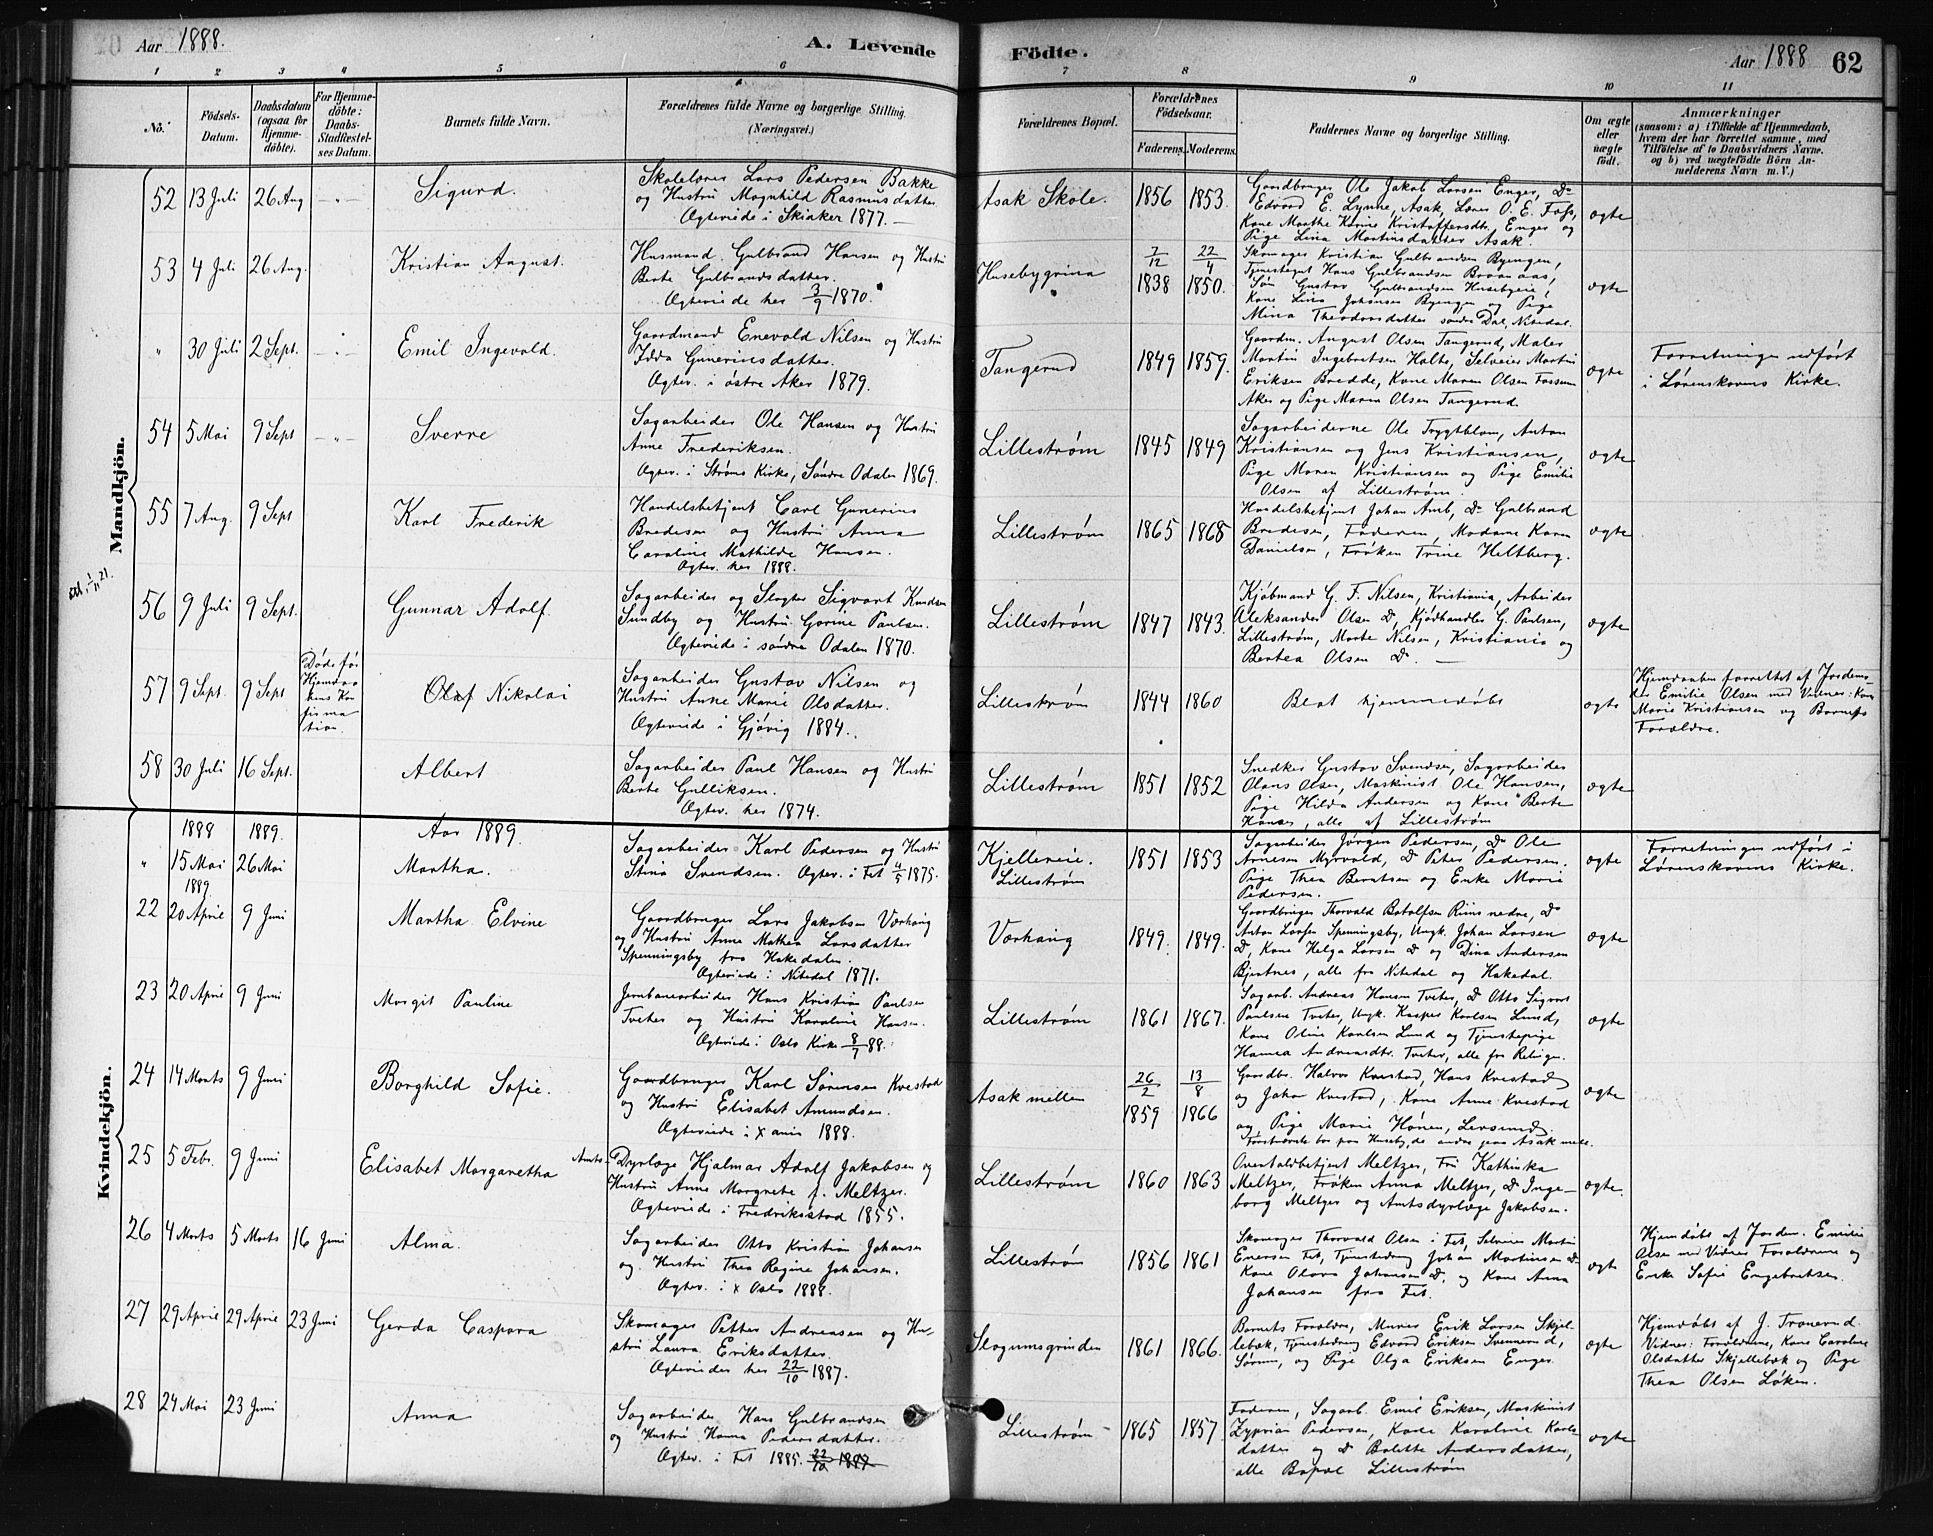 Aar 1888. A. Levende
Födte. Aar 1888 62
1 2 3 4 5 6 7 8 9 10 11
No.
Födsels-Datum.
Daabsdatum (ogsaa for Hjemme-döbte).
For Hjemme-döbte: Daabs-Stadfæstel-ses Datum.
Barnets fulde Navn.
Forældrenes fulde Navne og borgerlige Stilling. (Næringsvei.)
Forældrenes Bopæl.
Forældrenes Födselsaar.
Faderens. Moderens.
Faddernes Navne og borgerlige Stilling.
Om ægte eller uægte födt.
Anmærkninger
(saasom: a) i Tilfælde af Hjemmedaab,
hvem der har forrettet samme, med
Tilföielse af to Daabsvidners Navne.
og b) ved uægtefödte Börn An-
melderens Navn m. V.)
Mandkjön.
52 13 Juli 26 Aug — " — Sigurd.
Skolelærer Lars Pedersen Bakke
og Hustru Magnhild Rasmusdatter
Ægteviede i Skiaker 1877. —
Asak Skole. 1856 1853.
Gaardbruger Ole Jakob Larsen Enger, Do
Edvard E. Lynne, Asak, Lærer O. E. Foss,
Kone Marthe Karine Kristoffersdtr. Enger og
Pige Lina Martinsdatter Asak.
ægte
53 4 Juli 26 Aug. Kristian August.
Husmand Gulbrand Hansen og Hustru
Berte Gulbrandsdatter.
Ægteviede her 3/9 1870.
Husebygrina 7/12 1838 22/4 1850.
Skomager Kristian Gulbrandsen Byengen,
Tjenestegut Hans Gulbrandsen Braanaas,
Søn Gustav Gulbrandsen Husebyeie,
Kone Lina Johansen Byengen og Pige
Mina Theodorsdatter søndre Dal, Nitedal.
ægte
" 30 Juli 2 Sept. — " — Emil Ingevald.
Gaardmand Enevald Nilsen og Hustru
Idda Gunerinesdatter.
Ægtev. i østre Aker 1879.
Tangerud 1849 1859.
Gaardm. August Olsen Tangerud, Maler
Martin Ingebretsen Holte, Selveier Martin
Eriksen Bredde, Kone Maren Olsen Fossum
Aker og Pige Maren Olsen Tangerud.
ægte
Forretningen udført
i Lørenskovens Kirke.
54 5 Mai 9 Sept — " — Sverre
Sagarbeider Ole Hansen og Hustru
Anne Frederiksen.
Ægtev. i Strøms Kirke, Søndre Odalen 1869.
Lillestrøm 1845 1849
Sagarbeiderne Ole Trygtblom, Anton
Kristiansen og Jens Kristiansen,
Pige Maren Kristiansen og Pige Emilie
Olsen af Lillestrøm.
ægte
55 7 Aug. 9 Sept Karl Frederik
Handelsbetjent Carl Gunerius
Bredesen og Hustru Anna
Caroline Mathilde Hansen.
Ægtev. her 1888.
Lillestrøm 1865 1868
Handelsbetjent Johan Amb, Do Gulbrand
Bredesen, Faderen, Madame Karen
Danielsen, Frøken Trine Heltberg.
ægte
56 9 Juli 9 Sept. Gunnar Adolf.
Sagarbeider og Slagter Sigvart Knudsen
Sundby og Hustru Gorine Paulsen.
Ægteviede i søndre Odalen 1870.
Lillestrøm 1847 1843.
Kjøbmand G. F. Nilsen, Kristiania, Arbeider
Aleksander Olsen Do, Kjødhandler G. Paulsen,
Lillestrøm, Marte Nilsen, Kristiania og
Bertea Olsen Do. —
ægte
57 9 Sept. 9 Sept Døde før Hjemdaa-bens Kon-firma-tion. Olaf Nikolai
Sagarbeider Gustav Nilsen og
Hustru Anne Marie Olsdatter.
Ægteviede i Gjøvig 1884.
Lillestrøm 1844 1860
Blot hjemmedøbt
ægte
Hjemdaaben forrettet af Jordemo-
der Emilie Olsen med Vidner: Kone
Marie Kristiansen og Barnets
Forældre.
58 30 Juli 16 Sept. Albert
Sagarbeider Paul Hansen og Hustru
Berte Gulliksen.
Ægtev. her 1874.
Lillestrøm 1851 1852
Snedker Gustav Svendsen, Sagarbeider
Olaus Olsen, Maskinist Ole Hansen,
Pige Hilda Andersen og Kone Berte
Hansen, alle af Lillestrøm
ægte
Kvindekjön.
1888 1889. Aar 1889.
" 15 Mai 26 Mai Martha.
Sagarbeider Karl Pedersen og Hustru
Stina Svendsen. Ægtev. i Fet 4/5 1875.
Kjellereie. Lillestrøm 1851 1853
Sagarbeider Jørgen Pedersen, Do Ole
Arnesen Myrvold, Do Peter Pedersen.
Pige Thea Berntsen og Enke Marie
Pedersen.
ægte
Forretningen udført i
Lørenskovens Kirke.
1889.
22 20 April 9 Juni Martha Elvine
Gaardbruger Lars Jakobsen Værhaug
og Hustru Anne Mathea Larsdatter
Spenningsby fra Hakedalen.
Ægteviede i Nitedal 1871.
Værhaug 1849. 1849.
Gaardbruger Thorvald Botolfsen Rims nedre, Do
Anton Larsen Spenningsby, Ungk. Johan Larsen
Do, Kone Helga Larsen Do og Dina Andersen
Bjertnes, alle fra Nitedal og Hakedal.
ægte
23 20 April 9 Juni Margit Pauline
Jernbanearbeider Hans Kristian Paulsen
Tveter og Hustru Karoline Hansen.
Ægteviede i Oslo Kirke 8/7 88.
Lillestrøm 1861 1867.
Sagarb. Andreas Hansen Tveter, Do Otto Sigvart
Paulsen Tveter, Ungk. Kasper Karlsen Lund,
Kone Oline Karlsen Lund og Tjenstepige
Hanna Andreasdtr. Tveter, alle fra
ægte
24 14 Marts 9 Juni Borghild Sofie.
Gaardbruger Karl Sørensen Kvestad
og Hustru Elisabet Amundsen.
Ægteviede i Xania 1888.
Asak mellem 26/2 1859 13/8 1866
Gaardbr. Halvor Kvestad, Hans Kvestad
og Johan Kvestad, Kone Anne Kvestad
og Pige Marie Hønen, Leirsund.
ægte
25 5 Febr. 9 Juni Elisabet Margaretha
Amts-Dyrlæge Hjalmar Adolf Jakobsen og
Hustru Anne Margrete f. Meltzer.
Ægteviede i Fredriksstad 1855.
Lillestrøm 1860 1863
Overtoldbetjent Meltzer, Fru Kathinka
Meltzer, Frøken Anna Meltzer, Do Inge-
borg Meltzer og Amtsdyrlæge Jakobsen.
ægte.
26 4 Marts 5 Marts 16 Juni Alma.
Sagarbeider Otto Kristian Johansen
og Hustru Thea Regine Johansen.
Ægtev. i X Oslo 1888.
Lillestrøm 1856 1861
Skomager Thorvald Olsen i Fet, Selveier Martin
Enersen Fet, Tjenestedreng Johan Martinsen Do
Kone Olava Johansen Do, og Kone Anna
Johansen fra Fet.
ægte
Hjemdøbt af Jordem. Emilie
Olsen med Vidner Forældrene og
Enke Sofie Engebretsen.
27 29 April 29 April 23 Juni Gerda Caspara
Skomager Petter Andreasen og Hu-
stru Laura Eriksdatter.
Ægteviedes her 22/10 1887.
Slogumsgrinden 1861 1866.
Barnets Forældre, Murer Erik Larsen Skjel-
lebæk, Tjenstedreng Edvard Eriksen Svennerud,
Sørum, og Pige Olga Eriksen Enger.
ægte
Hjemdøbt af J. Tronerud.
Vidner: Forældrene, Kone Caroline
Olsdatter Skjellebæk og Pige
Thea Olsen Løken.
28 24 Mai 23 Juni Anna
Sagarbeider Hans Gulbrandsen
og Hustru Hanna Pedersdatter.
Ægtev. i Fet 1885. 22/10 1887
Lillestrøm 1865 1857.
Faderen, Sagarb. Emil Eriksen, Maskinist
Zyprian Pedersen, Kone Karoline Karls-
datter og Do Bolette Andersdatter,
alle Bopæl Lillestrøm
ægte